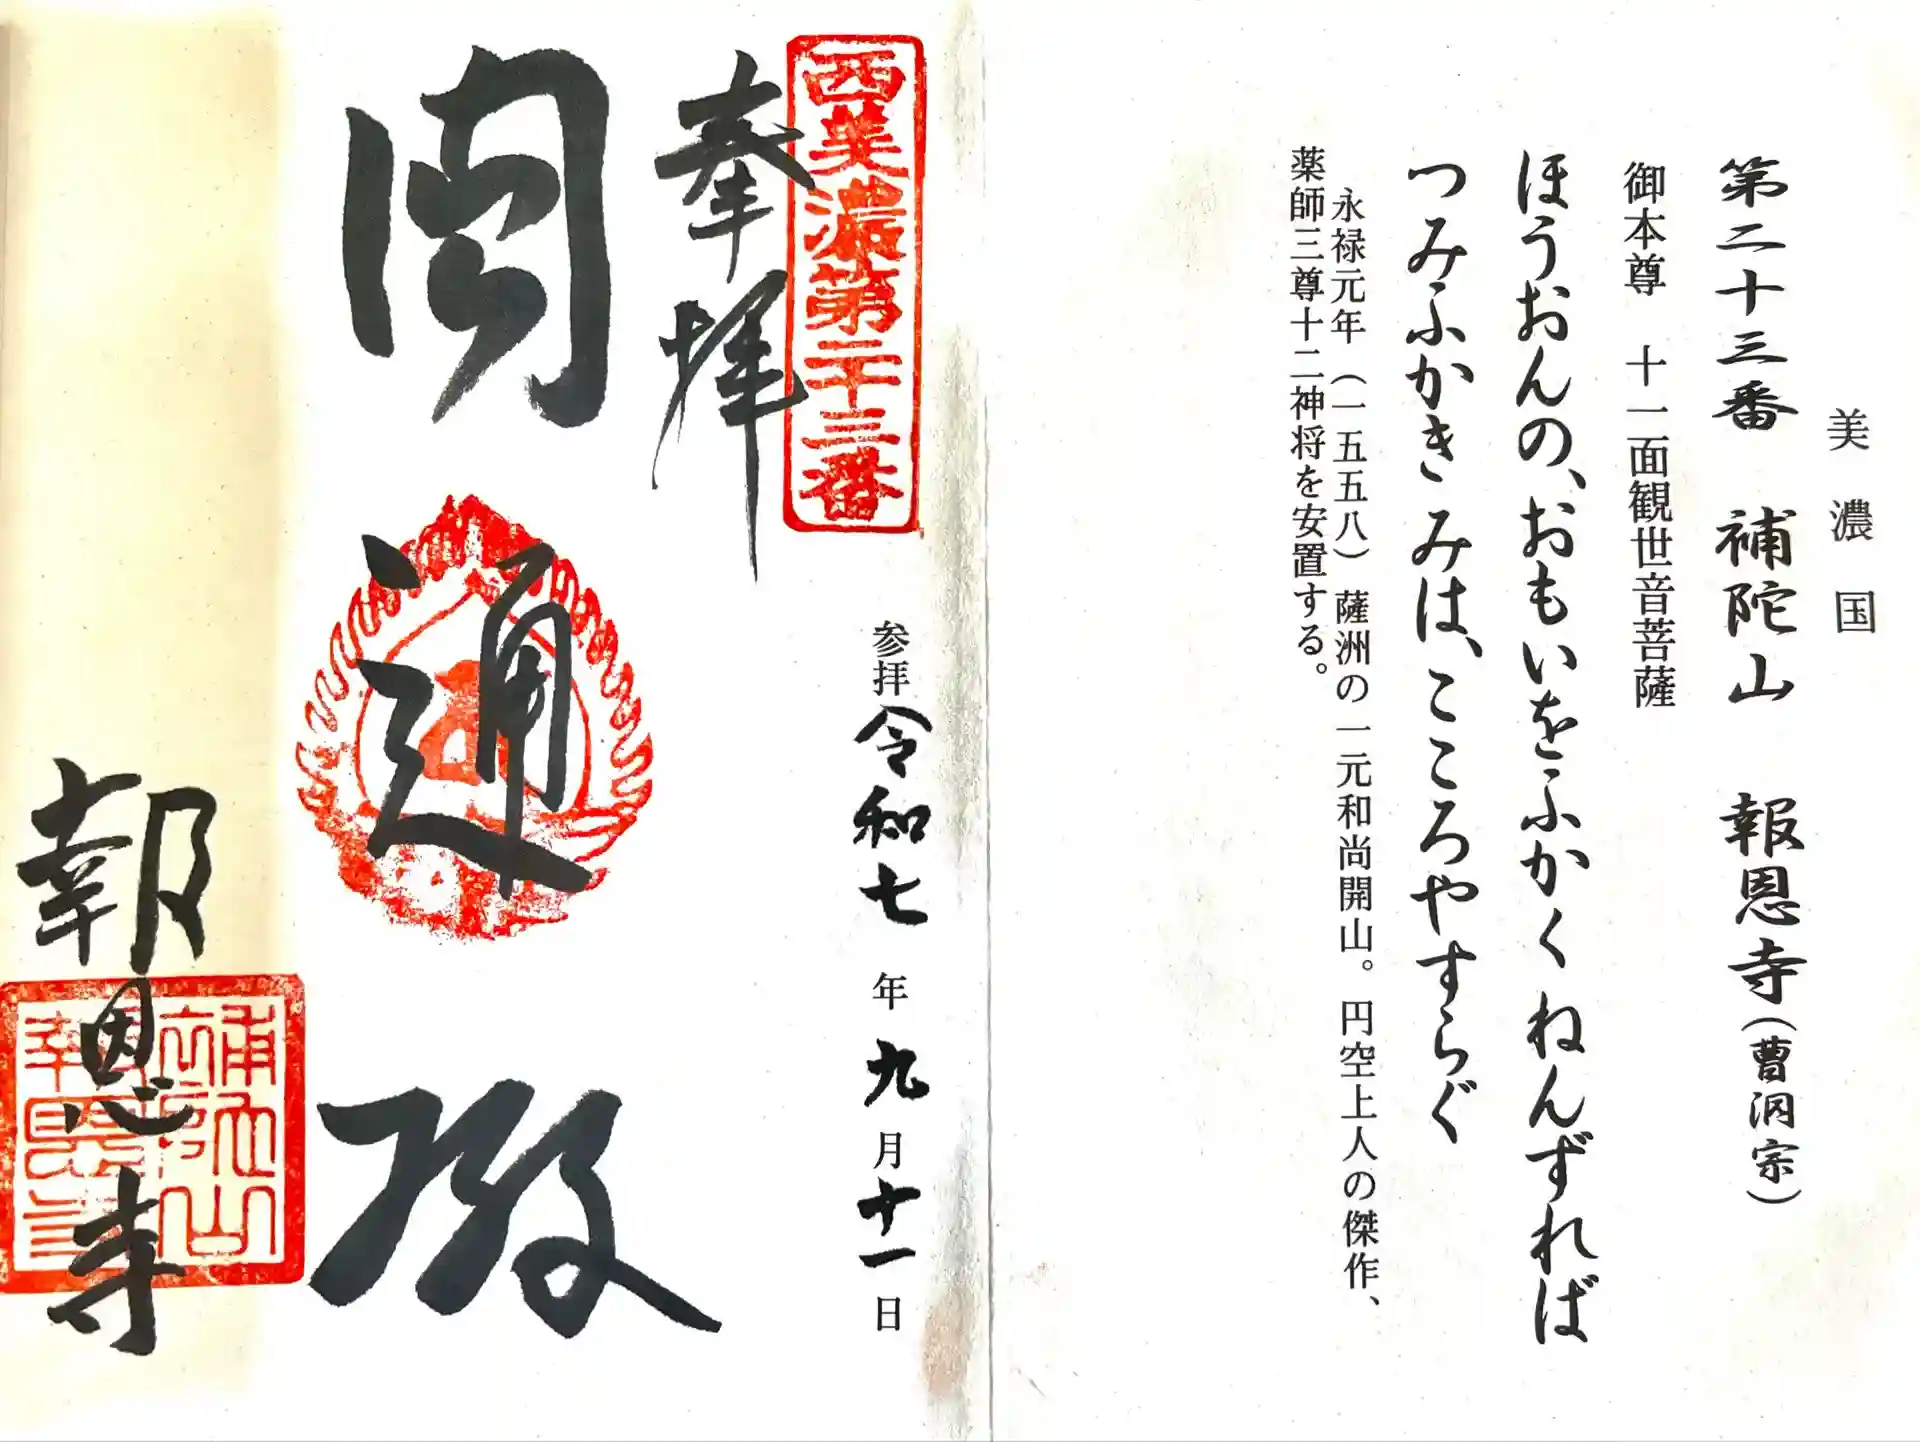 美濃国
第二十三番 補陀山 報恩寺（曹洞宗）
御本尊 十一面観世音菩薩
ほうおんの、おもいをふかく ねんずれば
つみふかき みは、こころやすらぐ
永禄元年（一五五八）薩洲の一元和尚開山。円空上人の傑作、
薬師三尊十二神将を安置する。
西美濃第二十三番
奉拝
参拝令和七年九月十一日
圓通殿
報恩寺
補陀山
報恩寺